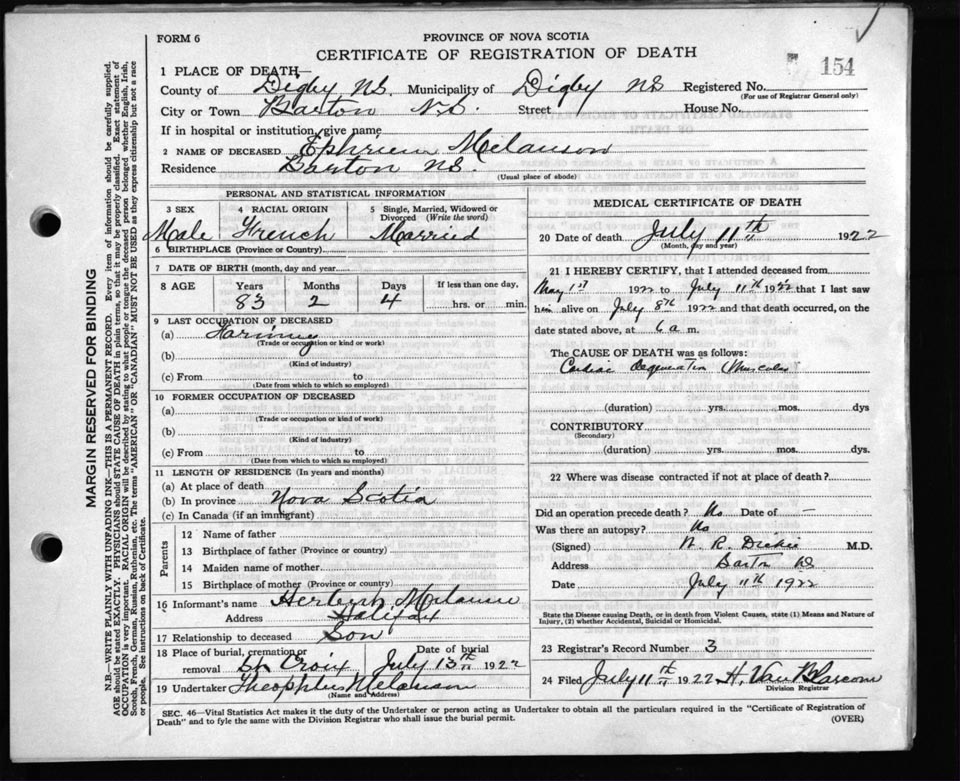 FORM 6
PROVINCE OF NOVA SCOTIA
CERTIFICATE OF REGISTRATION OF DEATH
154
1 PLACE OF DEATH—
County of Digby NS. Municipality of Digby NS Registered No.
(For use of Registrar General only)
City or Town Barton N.S. Street House No.
If in hospital or institution, give name
2 NAME OF DECEASED Ephriem Melanson
Residence Barton NS.
(Usual place of abode)
PERSONAL AND STATISTICAL INFORMATION
3 SEX 4 RACIAL ORIGIN 5 Single, Married, Widowed or Divorced (Write the word)
Male French Married
6 BIRTHPLACE (Province or Country)
7 DATE OF BIRTH (month, day and year)
8 AGE Years Months Days If less than one day,
83 2 4 hrs. or min.
9 LAST OCCUPATION OF DECEASED
(a) Farming
(Trade or occupation or kind or work)
(b)
(Kind of industry)
(c) From to
(Date from which to which so employed)
10 FORMER OCCUPATION OF DECEASED
(a)
(Trade or occupation or kind of work)
(b)
(Kind of industry)
(c) From to
(Date from which to which so employed)
11 LENGTH OF RESIDENCE (In years and months)
(a) At place of death
(b) In province Nova Scotia
(c) In Canada (if an immigrant)
Parents
12 Name of father
13 Birthplace of father (Province or country)
14 Maiden name of mother
15 Birthplace of mother (Province or country)
16 Informant's name Melanson
Address Halifax
17 Relationship to deceased Son
18 Place of burial, cremation or removal St Croix Date of burial July 13th 1922
19 Undertaker Melanson
(Name and Address)
MEDICAL CERTIFICATE OF DEATH
20 Date of death July 11th 1922
(Month, day and year)
21 I HEREBY CERTIFY, that I attended deceased from
May 1st 1922 to July 11th 1922 that I last saw
him alive on July 8th 1922 and that death occurred, on the
date stated above, at 6 a m.
The CAUSE OF DEATH was as follows:
Cardiac Degeneration (Muscular)
(duration) yrs. mos. dys
CONTRIBUTORY
(Secondary)
(duration) yrs. mos. dys.
22 Where was disease contracted if not at place of death?
Did an operation precede death? No Date of —
Was there an autopsy? No
(Signed) W. R. Dickie M.D.
Address Barton NS
Date July 11th 1922
State the Disease causing Death, or in death from Violent Causes, state (1) Means and Nature of Injury, (2) whether Accidental, Suicidal or Homicidal.
23 Registrar's Record Number 3
24 Filed July 11th 1922 H. Van Blarcom
Division Registrar
SEC. 46—Vital Statistics Act makes it the duty of the Undertaker or person acting as Undertaker to obtain all the particulars required in the "Certificate of Registration of
Death" and to fyle the same with the Division Registrar who shall issue the burial permit.
(OVER)
MARGIN RESERVED FOR BINDING
N.B.—WRITE PLAINLY WITH UNFADING INK—THIS IS A PERMANENT RECORD. Every item of information should be carefully supplied.
AGE should be stated EXACTLY. PHYSICIANS should STATE CAUSE OF DEATH in plain terms, so that it may be properly classified. Exact statement of
OCCUPATION is very important. RACIAL ORIGIN will be described by stating to what people or tongue the deceased person belonged, whether English, Irish,
Scotch, French, German, Russian, Ruthenian, etc. The terms "AMERICAN" OR "CANADIAN" MUST NOT BE USED as they express citizenship but not a race
or people. See instructions on back of Certificate.